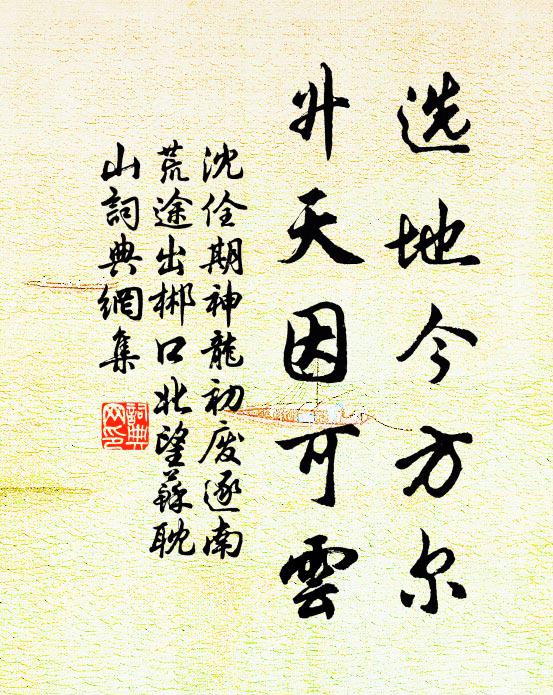 选地今方尔
升天因可雲
沈佺期神龍初废逐南
荒途出郴口北望蘇耽
山詞典網集
詞典
网印